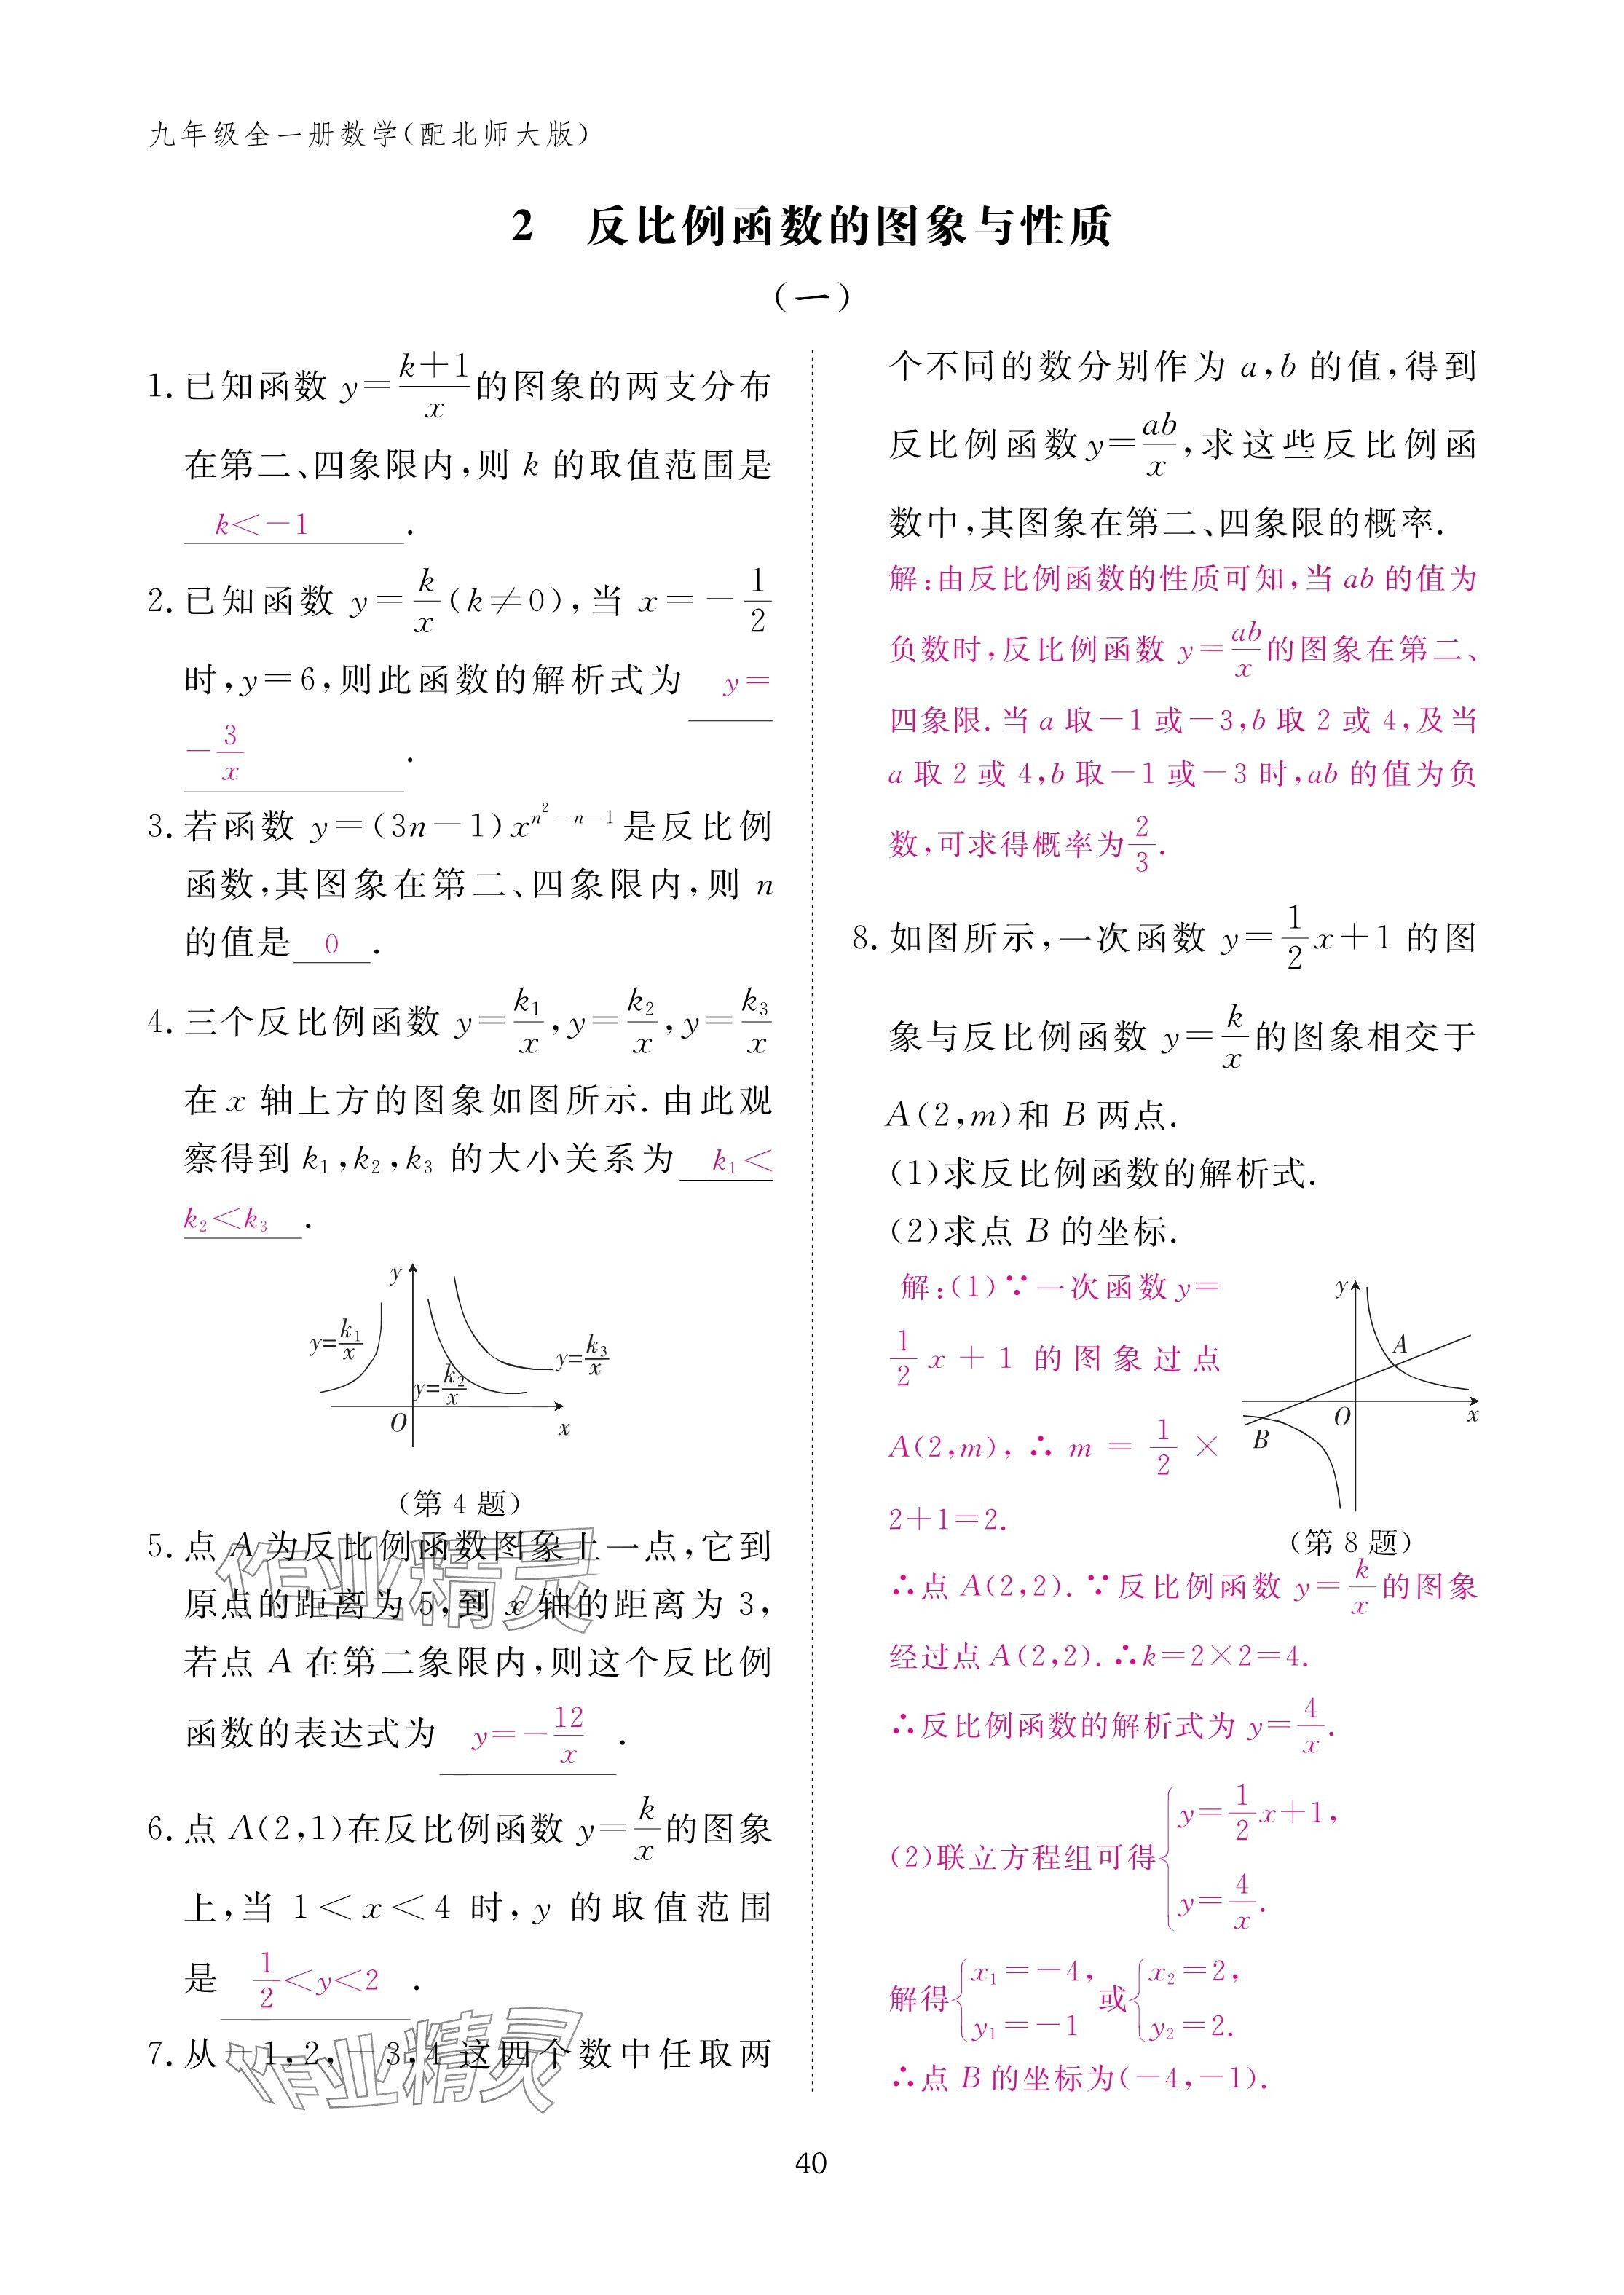 九年级全一册数学(配北师大版)
2 反比例函数的图象与性质
(一)
1. 已知函数 y=\frac{k+1}{x}的图象的两支分布
在第二、四象限内,则 k 的取值范围是
k<-1 .
2. 已知函数 y=\frac{k}{x}(k≠0),当 x=-\frac{1}{2}
时,y=6,则此函数的解析式为 y=
-\frac{3}{x} .
3. 若函数 y=(3n-1)x^{n^2-n-1}是反比例
函数,其图象在第二、四象限内,则 n
的值是 0 .
4. 三个反比例函数 y=\frac{k_1}{x},y=\frac{k_2}{x},y=\frac{k_3}{x}
在 x 轴上方的图象如图所示. 由此观
察得到 k_1,k_2,k_3 的大小关系为 k_1<
k_2<k_3 .
y
y=\frac{k_1}{x}
y=\frac{k_3}{x}
y=\frac{k_2}{x}
O
x
(第 4 题)
5. 点 A 为反比例函数图象上一点,它到
原点的距离为 5,到 x 轴的距离为 3,
若点 A 在第二象限内,则这个反比例
函数的表达式为 y=-\frac{12}{x} .
6. 点 A(2,1)在反比例函数 y=\frac{k}{x}的图象
上,当 1<x<4 时,y 的取值范围
是 \frac{1}{2}<y<2 .
7. 从-1,2,-3,4 这四个数中任取两
个不同的数分别作为 a,b 的值,得到
反比例函数 y=\frac{ab}{x},求这些反比例函
数中,其图象在第二、四象限的概率.
解:由反比例函数的性质可知,当 ab 的值为
负数时,反比例函数 y=\frac{ab}{x}的图象在第二、
四象限. 当 a 取-1 或-3,b 取 2 或 4,及当
a 取 2 或 4,b 取-1 或-3 时,ab 的值为负
数,可求得概率为\frac{2}{3}.
8. 如图所示,一次函数 y=\frac{1}{2}x+1 的图
象与反比例函数 y=\frac{k}{x}的图象相交于
A(2,m)和 B 两点.
(1)求反比例函数的解析式.
(2)求点 B 的坐标.
解:(1)∵一次函数 y=
\frac{1}{2}x+1 的图象过点
A(2,m),∴m=\frac{1}{2}×
2+1=2.
y
A
O
x
B
(第 8 题)
∴点 A(2,2). ∵反比例函数 y=\frac{k}{x}的图象
经过点 A(2,2). ∴k=2×2=4.
∴反比例函数的解析式为 y=\frac{4}{x}.
(2)联立方程组可得{y=\frac{1}{2}x+1,
y=\frac{4}{x}.
解得{x_1=-4, 或{x_2=2,
y_1=-1 y_2=2.
∴点 B 的坐标为(-4,-1).
作业精灵
作业精灵
40